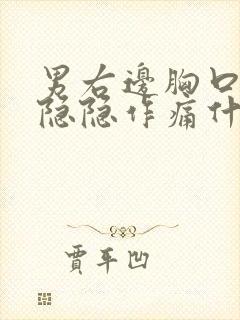 男右邊胸口
隐隐作痛什
賈平凹